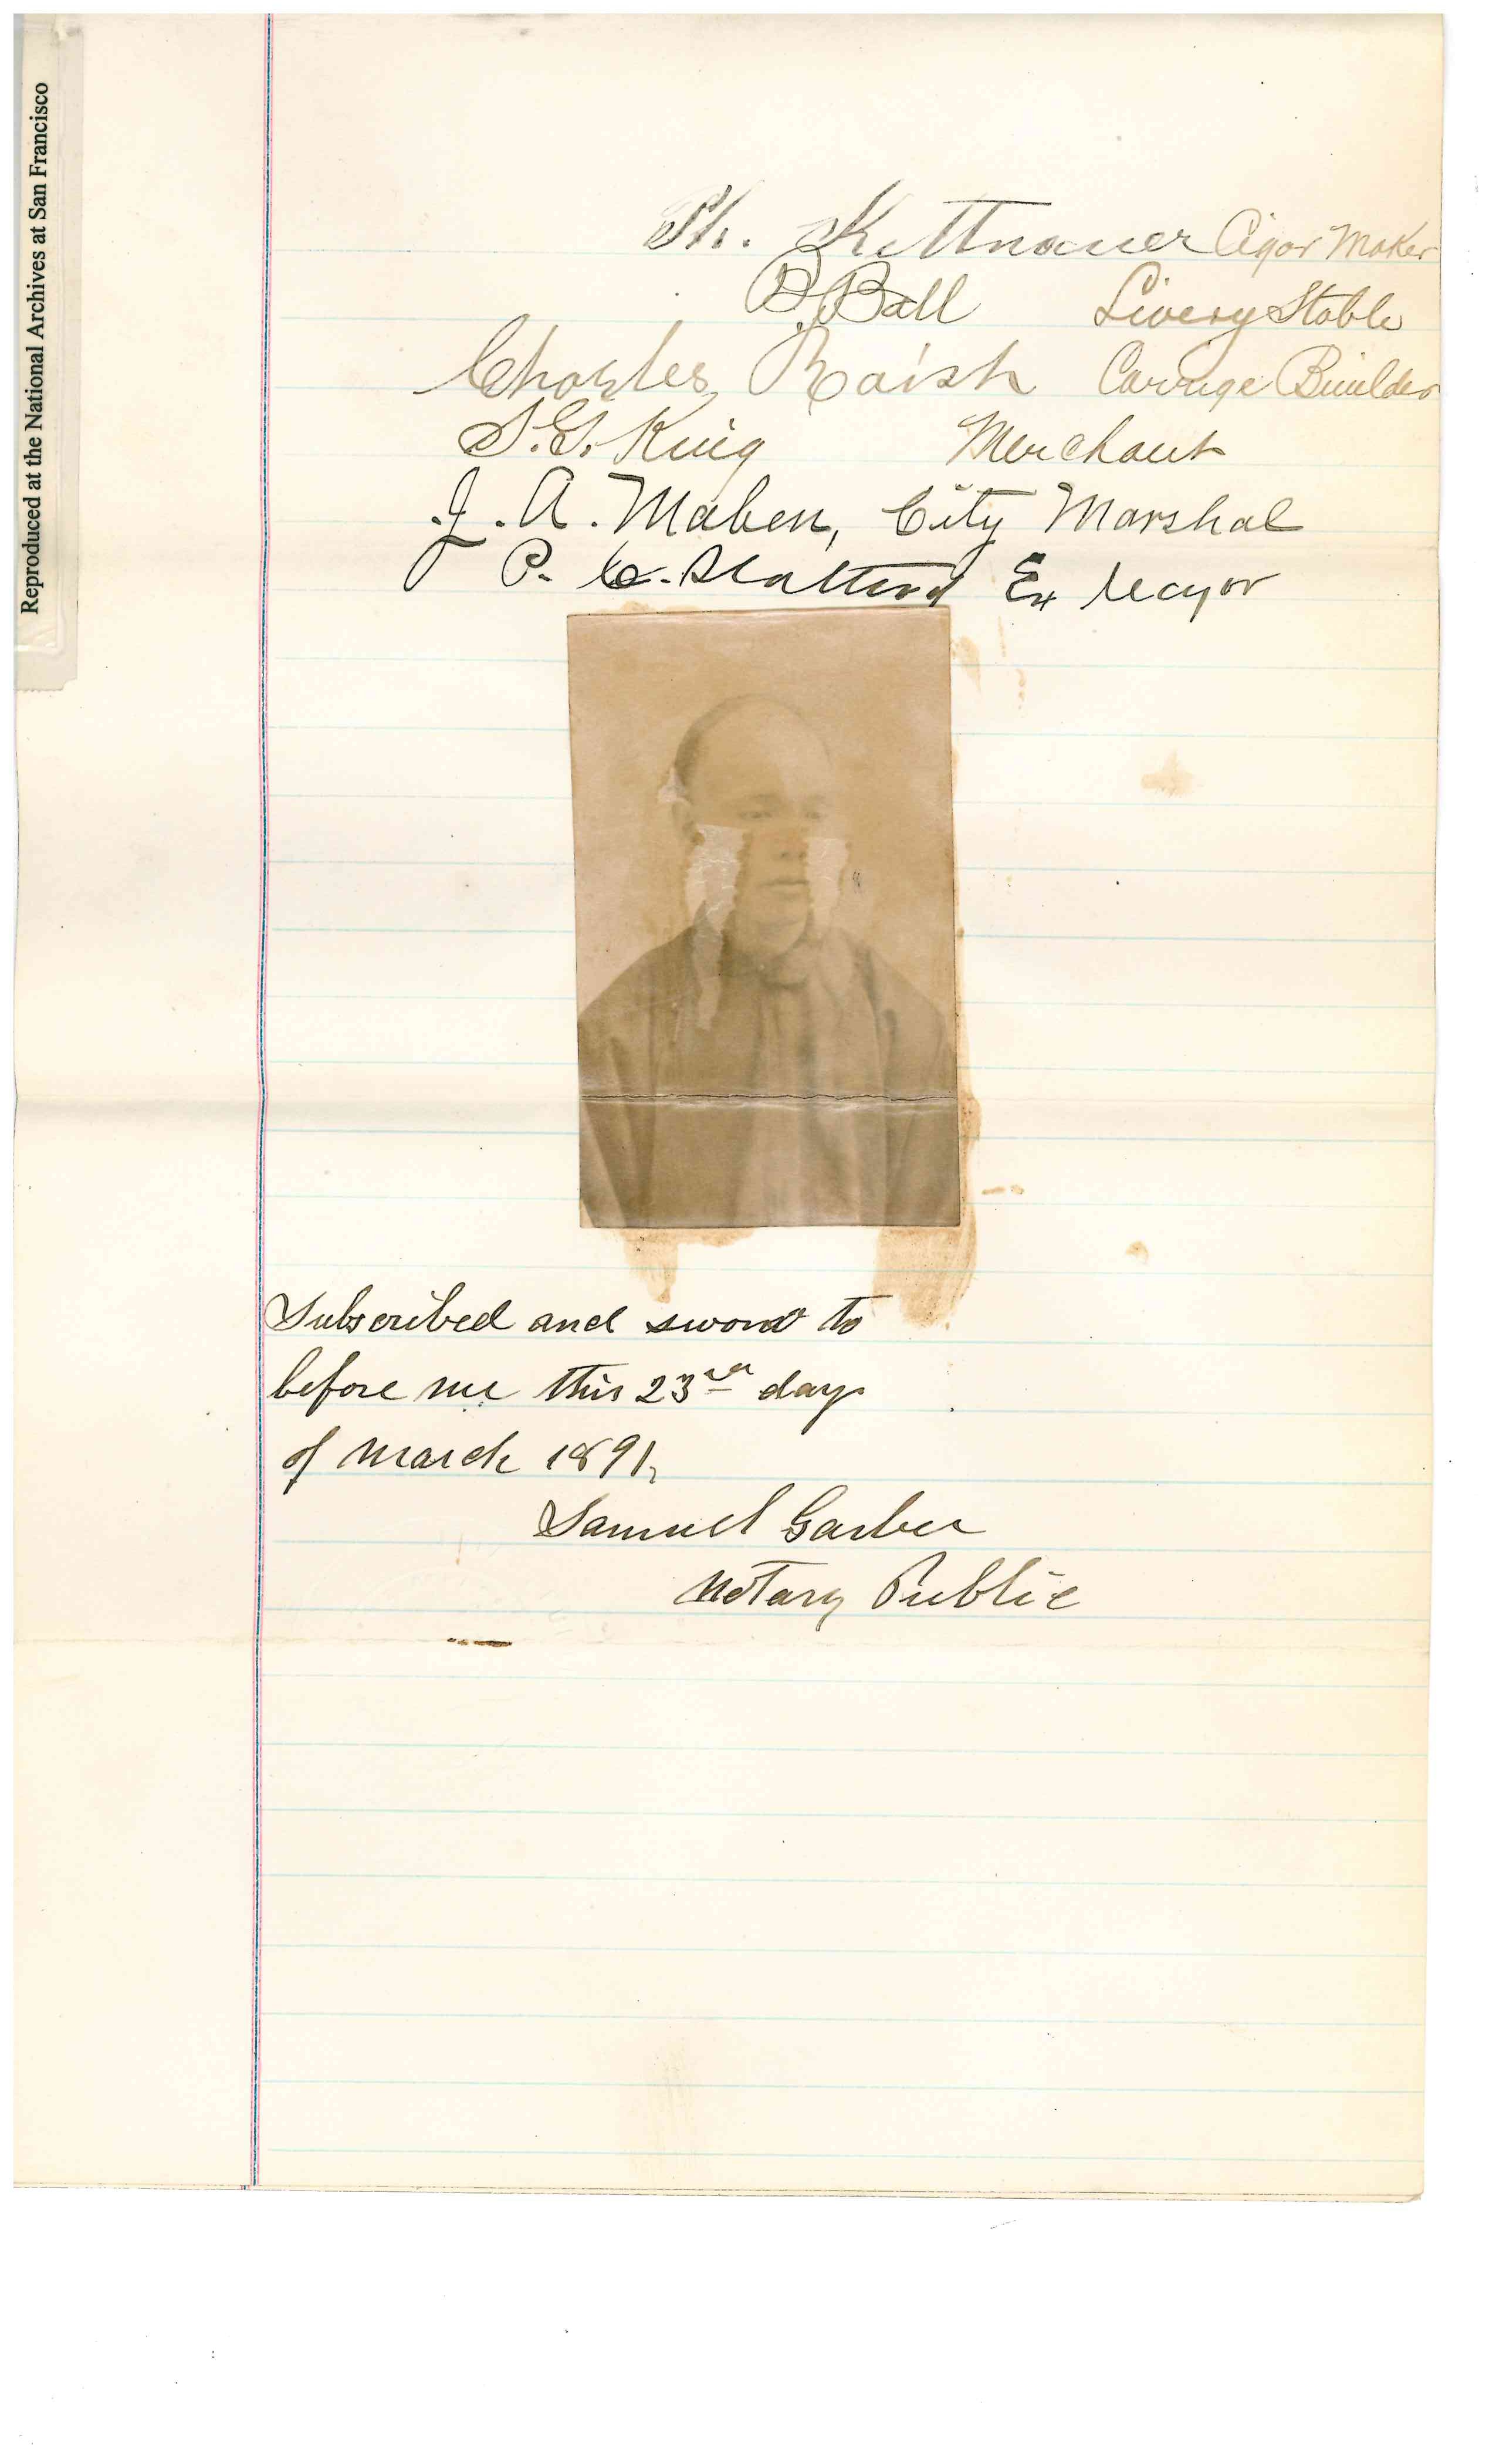 Reproduced at the National Archives at San Francisco
Ph. Kettnauer Cigar Maker
B. Ball Livery Stable
Charles Raish Carrige Buulder
S. G. King Merchant
J. A. Maben, City Marshal
P. C. Ex Mayor
Subscribed and sword to
before me this 23rd day
of March 1891,
Samuel Garber
Notary Public